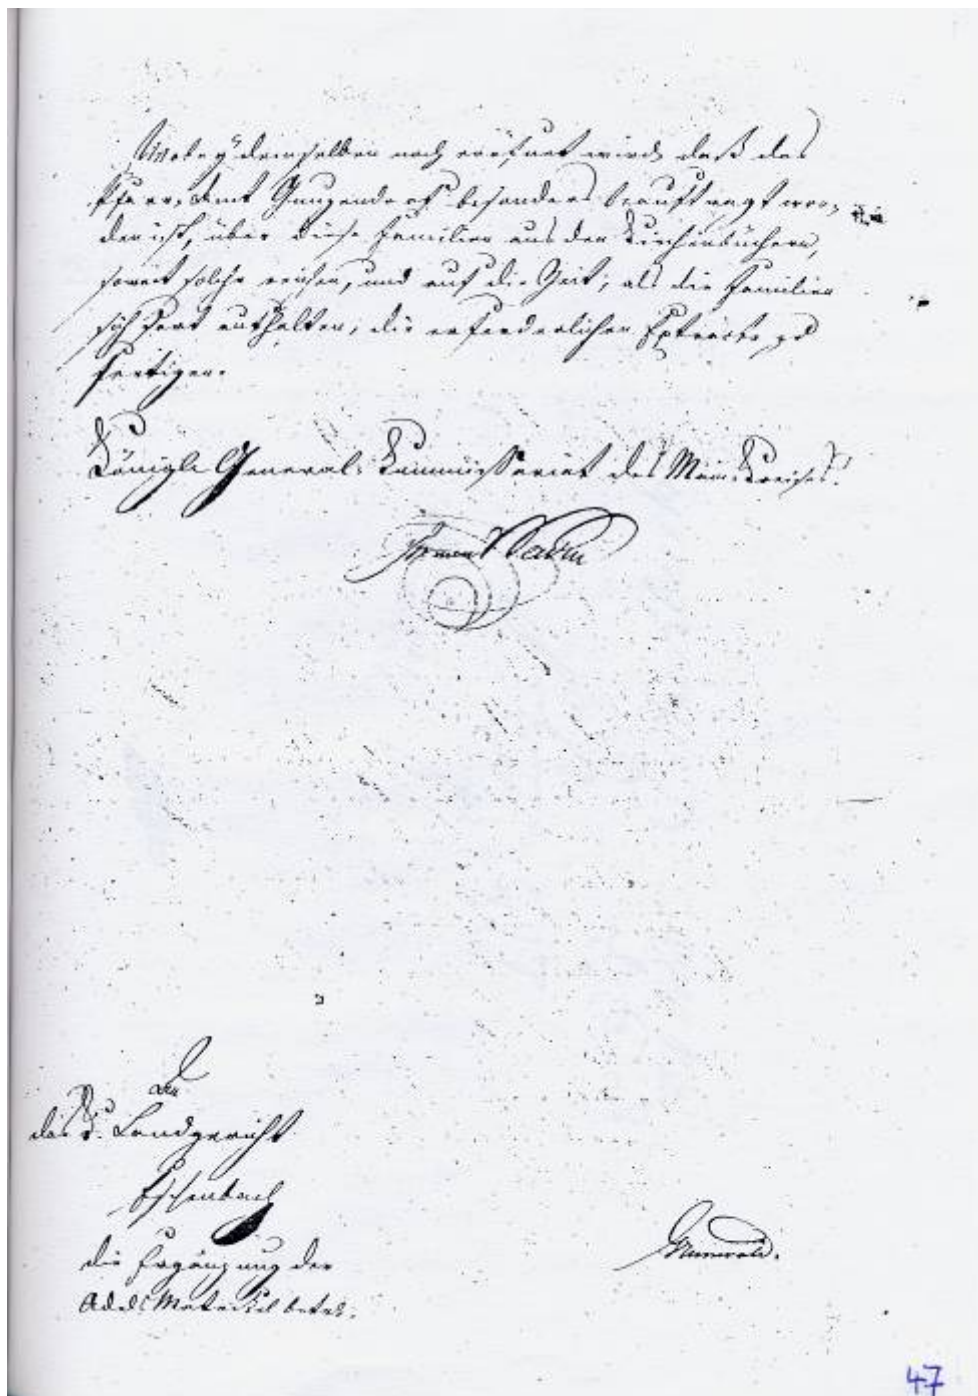 Wobey demselben noch eröfnet wird, daß das
Pfarr-Amt Gungendorf besonders beauftragt wor-
den ist, über diese Familien aus den Kirchenbüchern,
soweit solche reichen, und auf die Zeit, als die Familien
sich dort aufhalten, die erforderlichen Extracte zu
fertigen.
Königle General-Kommissariat des Main-Kreises.
An
das K. Landgericht
Eschenbach
die Ergänzung der
Adels Matrikel betr.
Grunwald.
47